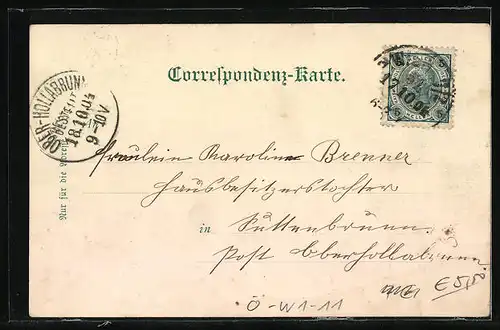 Correspondenz-Karte.
OBER-HOLLABRUNN
18.10.04
9-10V
Nur für die Adresse
Fräulein Karoline Brenner
Hausbesitzerstochter
in Suttenbrunn
Post Oberhollabrunn
€ 5,00
Ö-W1-11